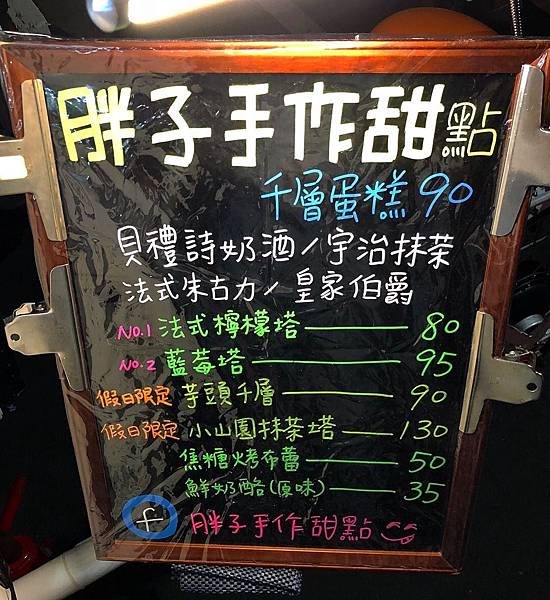 胖子手作甜點
千層蛋糕 90
貝禮詩奶酒/宇治抹茶
法式朱古力/皇家伯爵
NO.1 法式檸檬塔 — 80
NO.2 藍莓塔 — 95
假日限定 芋頭千層 — 90
假日限定 小山園抹茶塔 — 130
焦糖烤布蕾 — 50
鮮奶酪(原味) — 35
f 胖子手作甜點